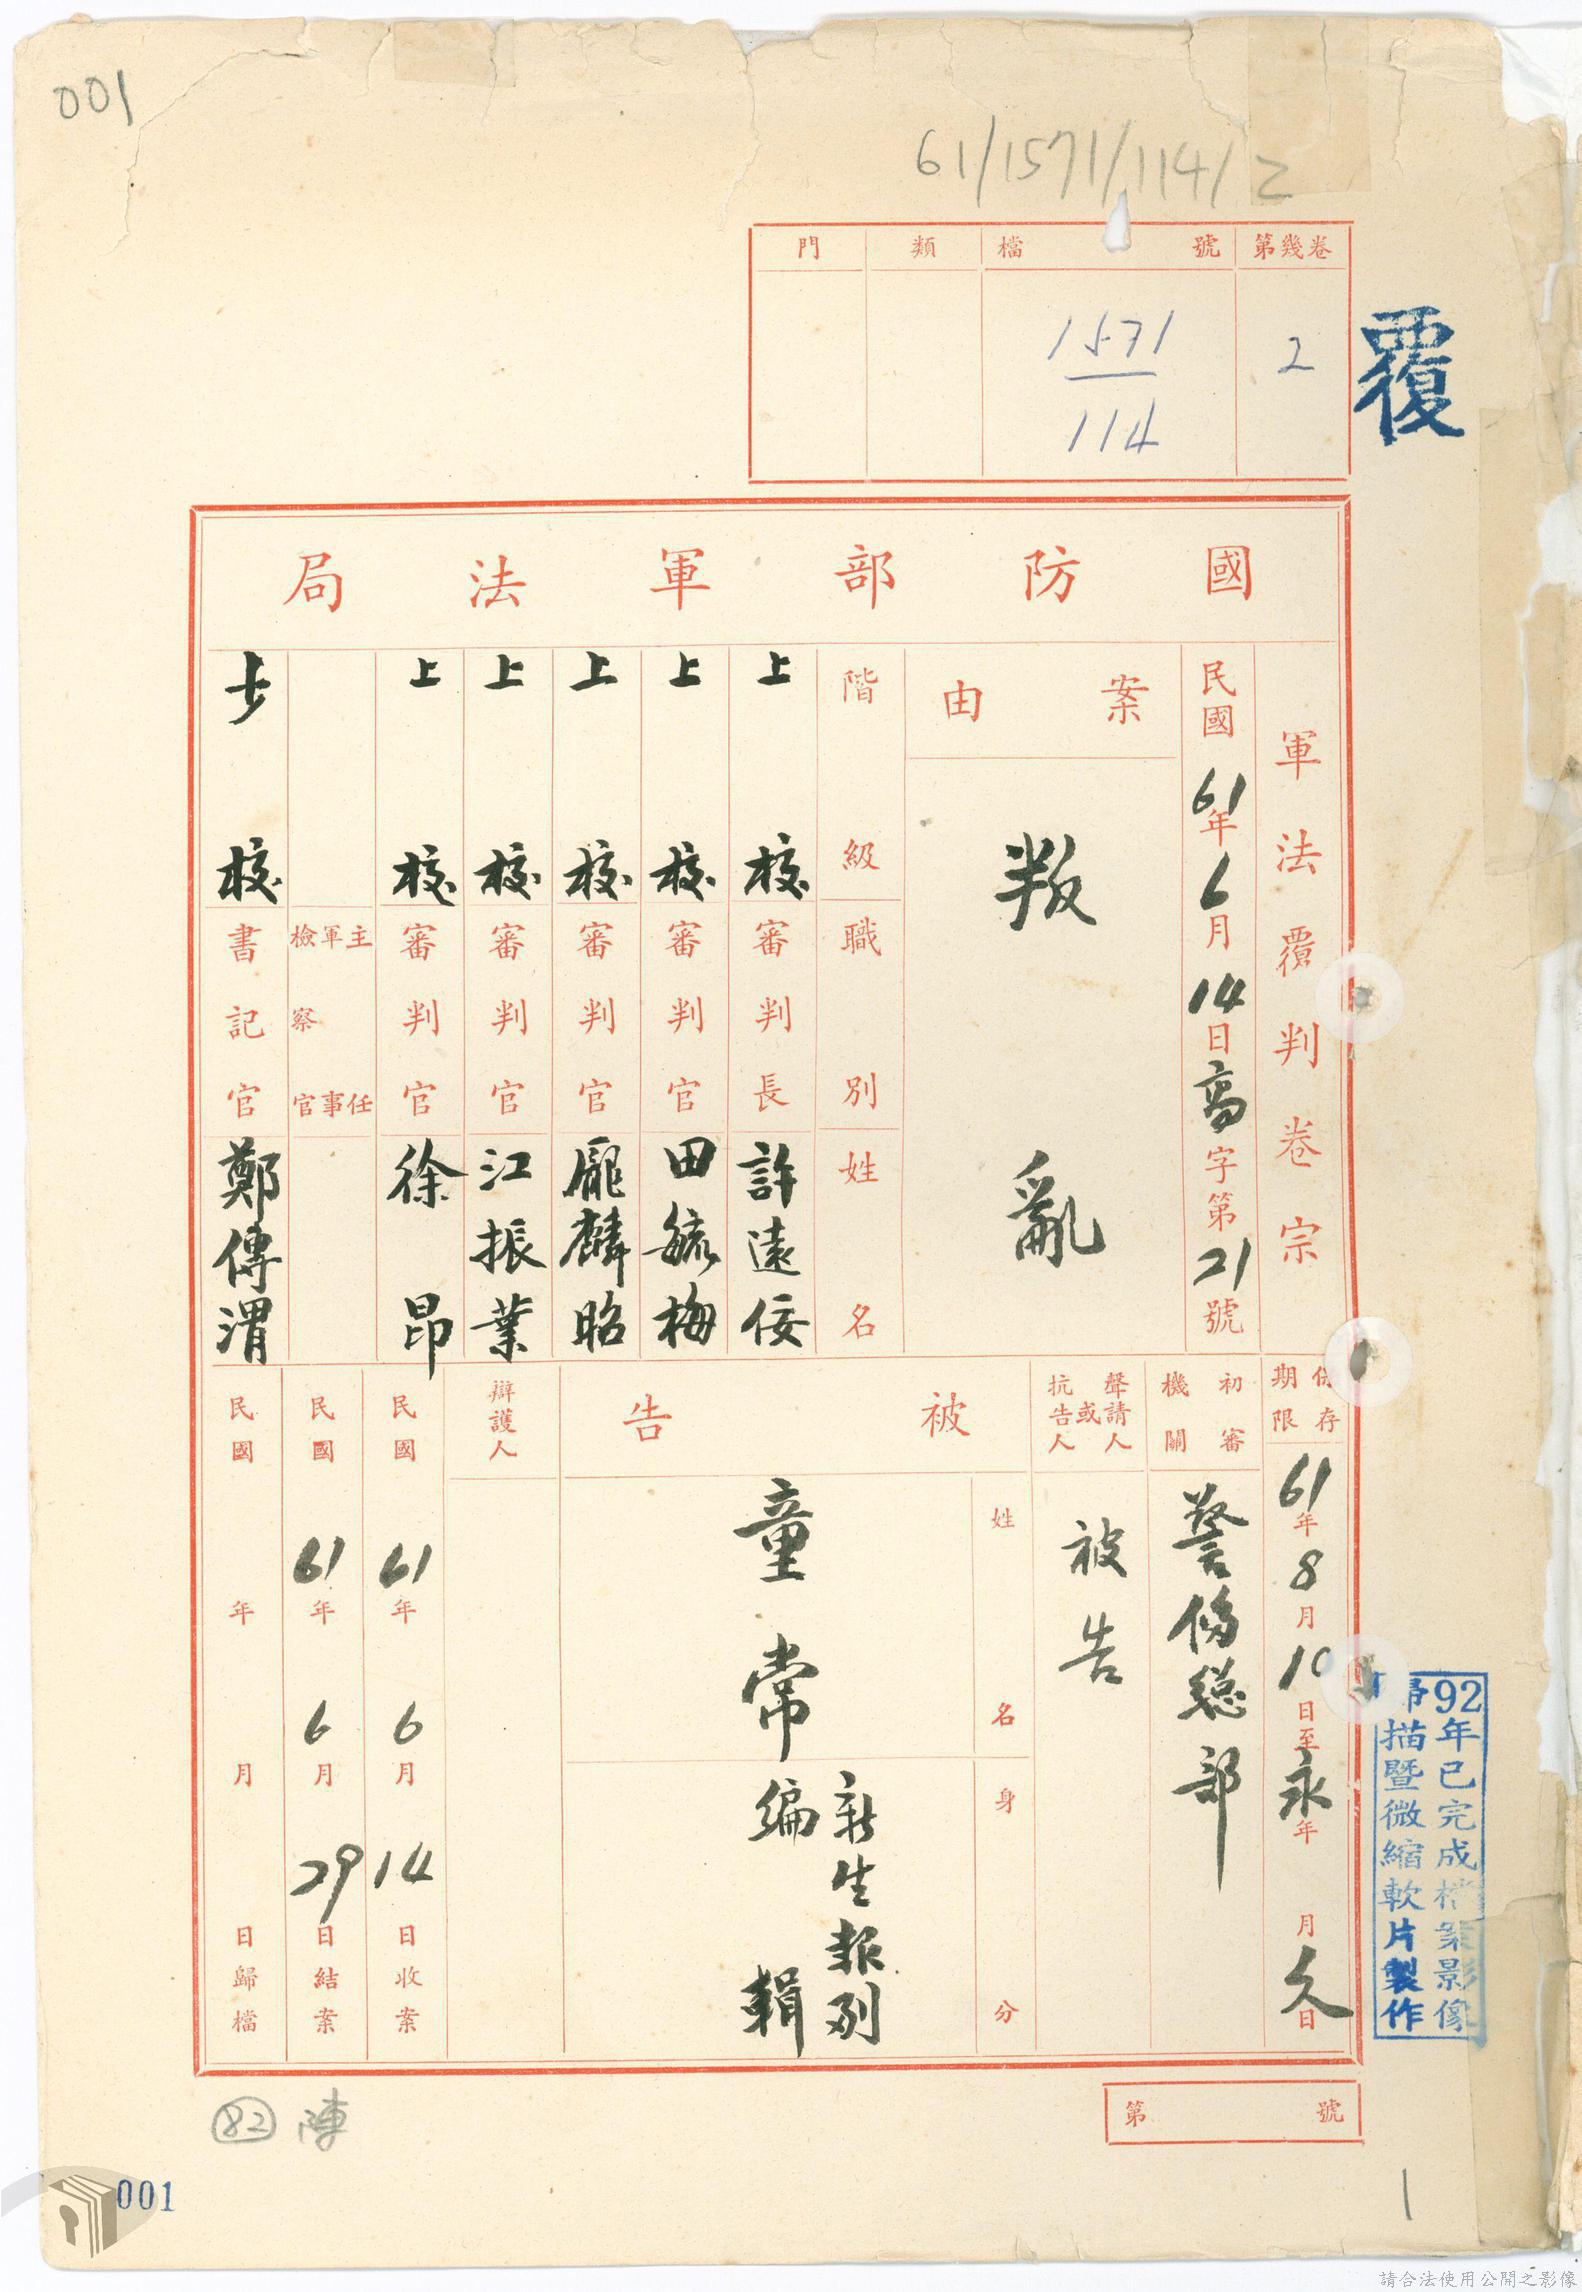 001
61/1571/114/2
門 類 檔號 第幾卷
1571
114
2
覆
國防部軍法局
軍法覆判卷宗
民國61年6月14日高字第21號
案由
叛亂
階級 職別 姓名
上校 審判長 許遠佞
上校 審判官 田毓梅
上校 審判官 龐麟昭
上校 審判官 江振業
上校 審判官 徐昂
主任軍事檢察官
校 書記官 鄭傳渭
保存期限
61年8月10日至永年月久日
初審機關
警備總部
聲請人或抗告人
被告
被告
姓名
童常
身分
新生報副
編輯
辯護人
民國61年6月14日收案
民國61年6月29日結案
民國年月日歸檔
92年已完成檔案影像
掃描暨微縮軟片製作
第號
82 陳
001
1
請合法使用公開之影像